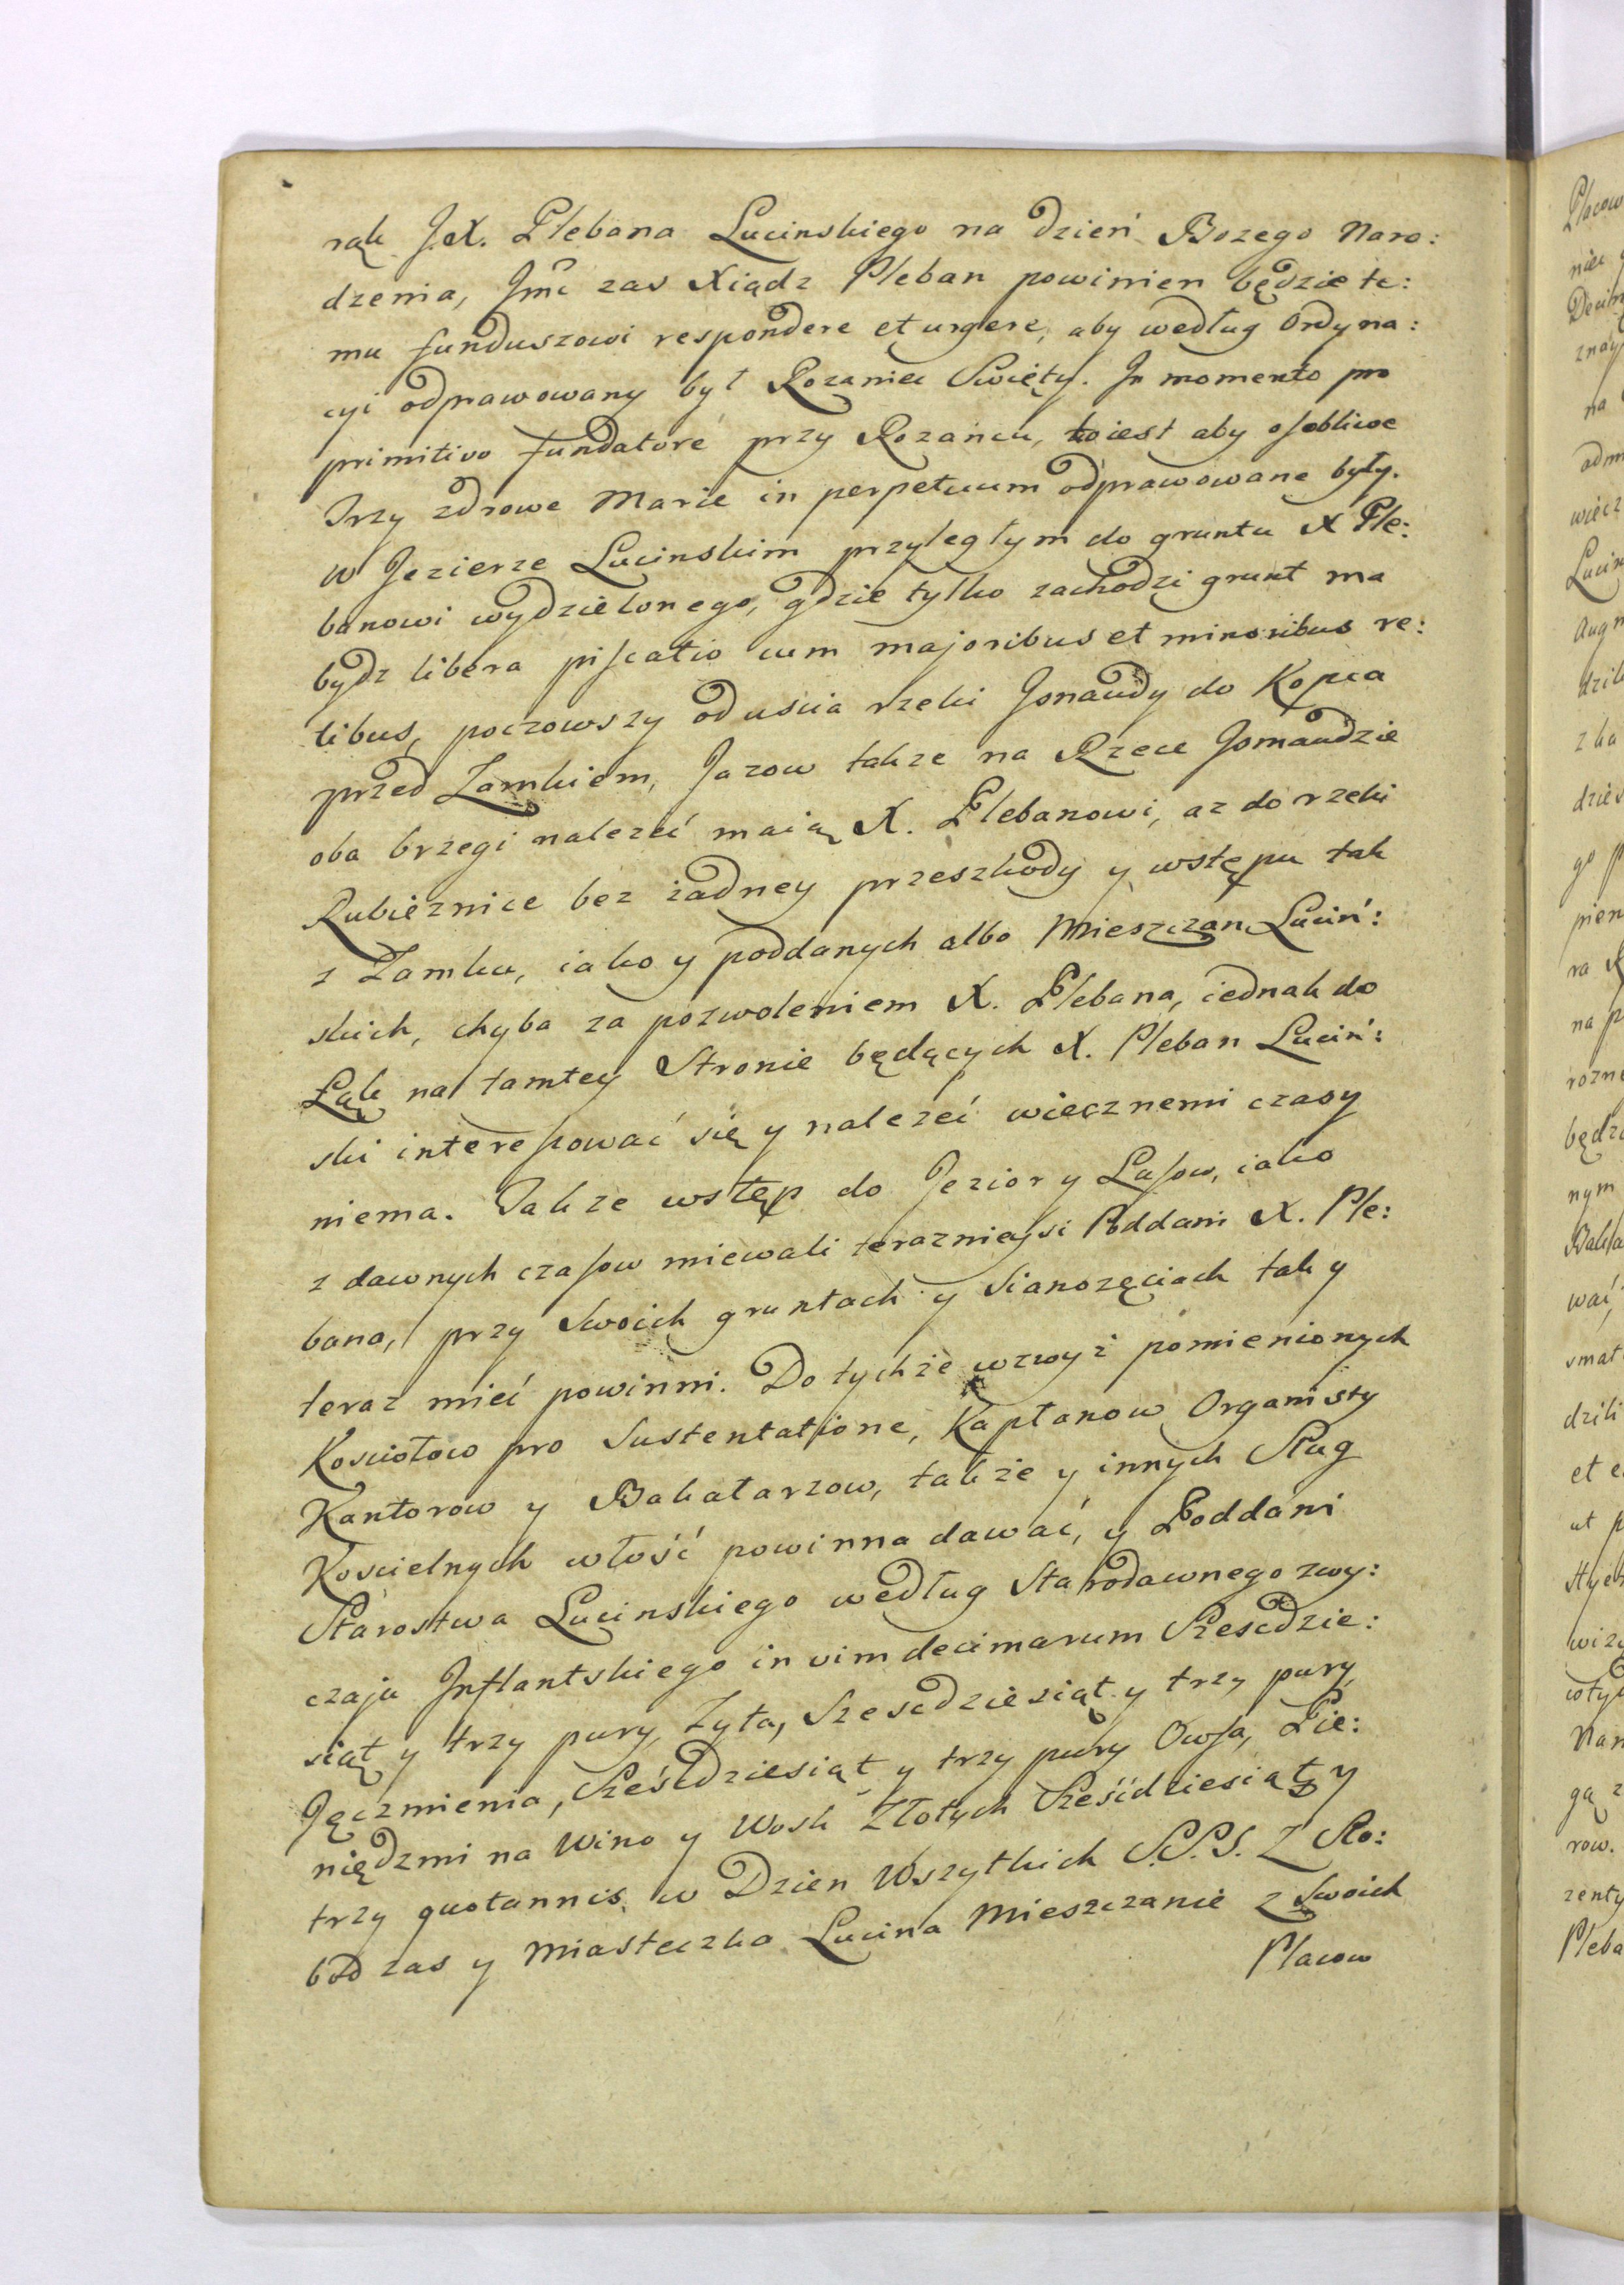 rąk JX. Plebana Lucinskiego na dzień Bozego Naro:
dzenia, Jmć zas Xiądz Pleban powinien będzie te:
mu funduszowi respondere et urgere, aby według Ordyna:
cyi odprawowany był Rozaniec Swięty. In momento pro
primitivo fundatore przy Rozancu, to iest aby osobliwe
Trzy zdrowe Marie in perpetuum odprawowane były.
W Jezierze Lucinskim przyległym do gruntu X Ple:
banowi wydzielonego, gdzie tylko zachodzi grunt ma
bydz libera piscatio cum majoribus et minoribus re:
tibus, poczowszy od uscia rzeki Jonaudy do Kopca
przed Zamkiem, Jazow takze na Rzece Jomaudzie
oba brzegi nalezeć maią X. Plebanowi, az do rzeki
Rubieznice bez żadney przeszkody y wstępu tak
z Zamku, iako y poddanych albo Mieszczan Luciń:
skich, chyba za pozwoleniem X. Plebana, iednak do
Łąk na tamtey Stronie będących X. Pleban Luciń:
ski interesować się y nalezeć wiecznemi czasy
niema. Takze wstęp do Jezior y Lasow, iako
z dawnych czasow miewali teraznieysi Poddani X. Ple:
bana, przy Swoich gruntach y Sianozęciach tak y
teraz mieć powinni. Do tychże wzwyż pomienionych
Kosciołow pro Sustentatione, Kapłanow Organisty
Kantorow y Bakałarzow, także y innych Sług
Koscielnych włość powinna dawać, y Poddani
Starostwa Lucinskiego według Starodawnego zwy:
czaju Inflantskiego in vim decimarum Szescdzie:
siąt y trzy pury, Zyta, Szescdziesiąt y trzy pury
Jęczmienia, Sześcdziesiąt y trzy pury Owsa, Pie:
niędzmi na Wino y Wosk Złotych Sześćdziesiąt y
trzy quotannis w Dzien Wszytkich S.S.S. Z Sło:
bod zas y Miasteczka Lucina Mieszczanie z Swoich
Placow